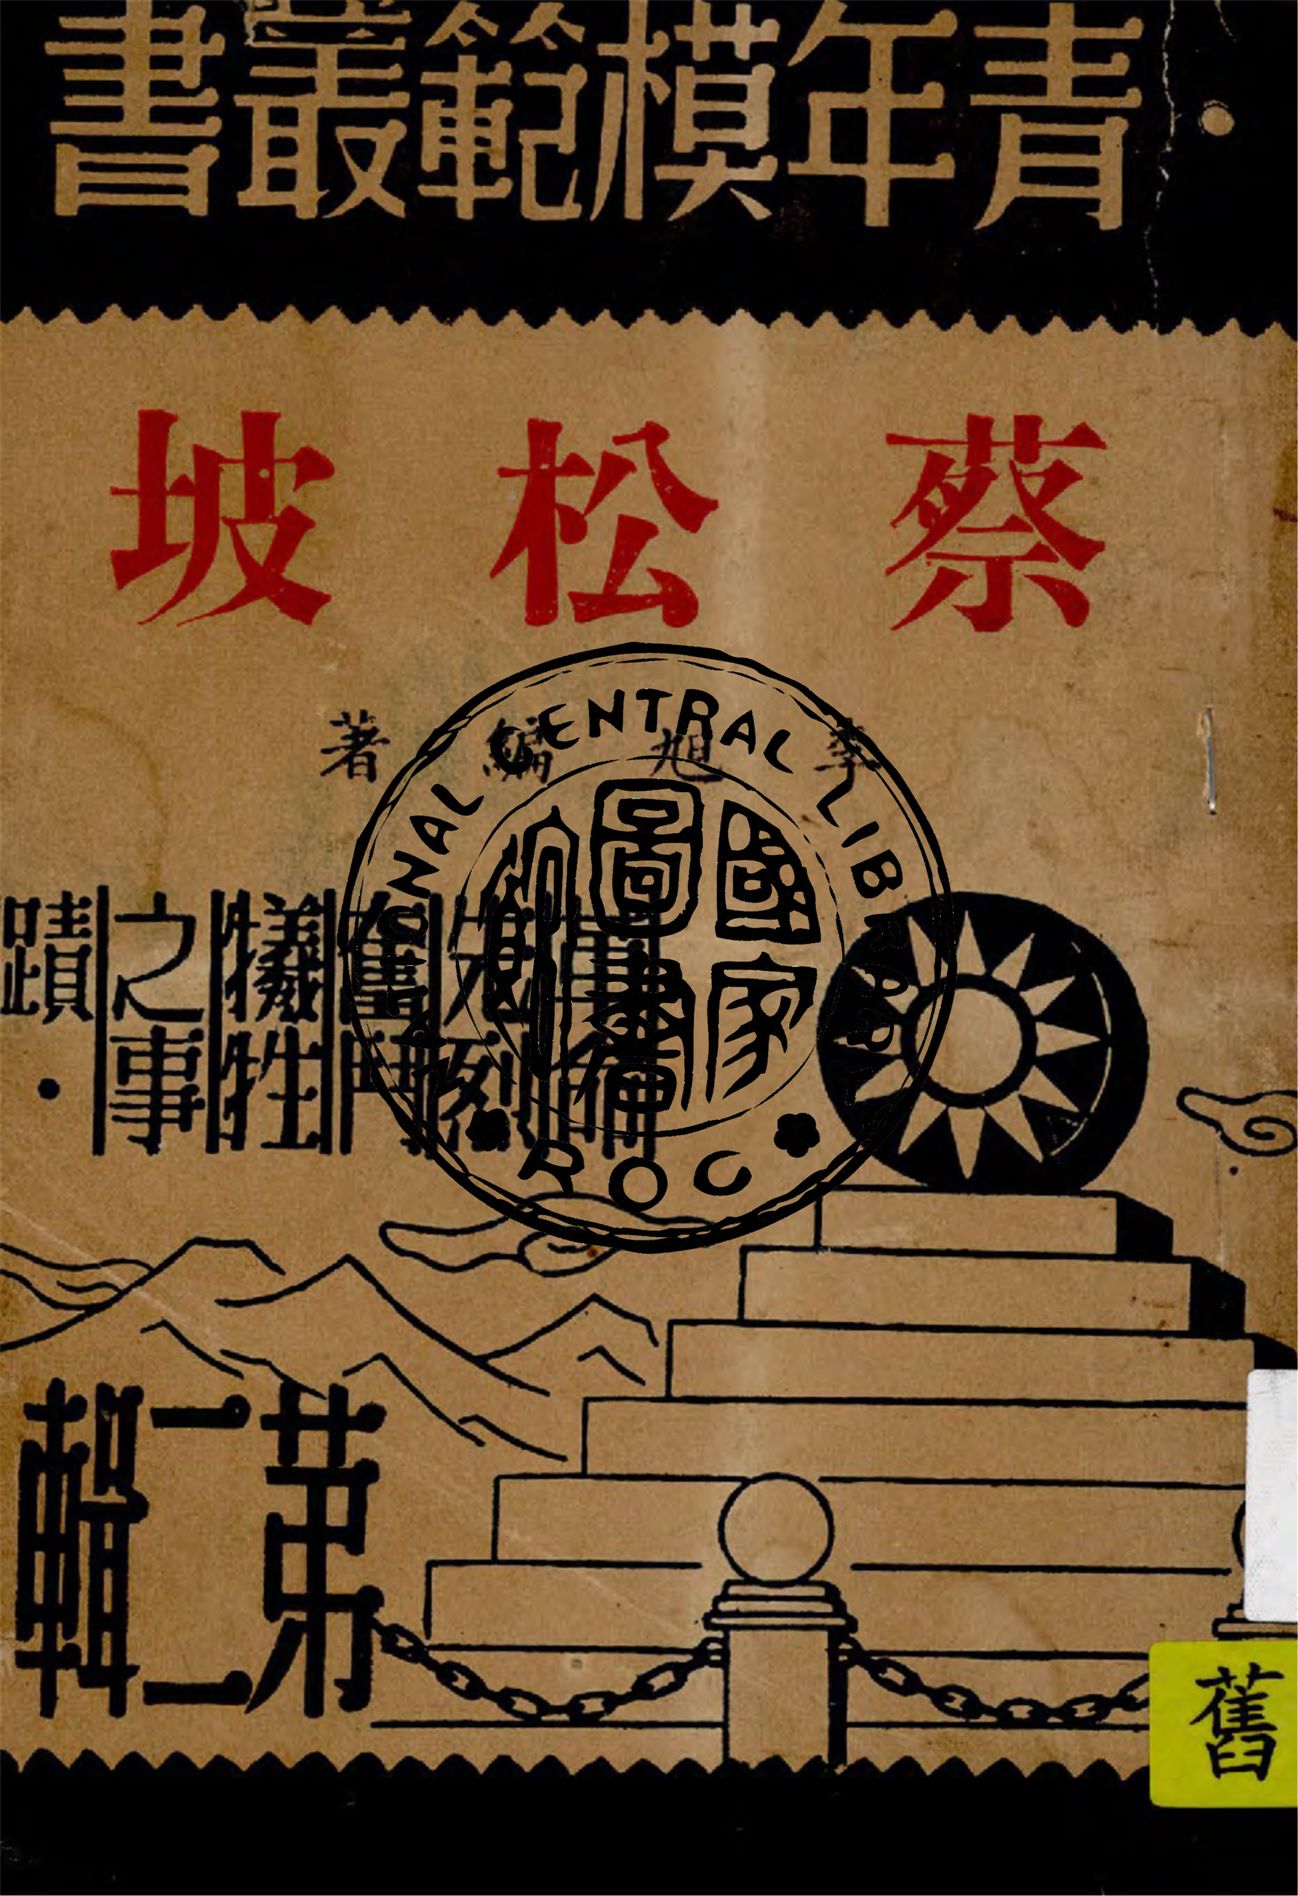 青年模範叢書
蔡松坡
李旭編著
革命
先烈
奮鬥
犧牲
之事
蹟．
第二輯
NATIONAL CENTRAL LIBRARY
國家圖書館
ROC
舊